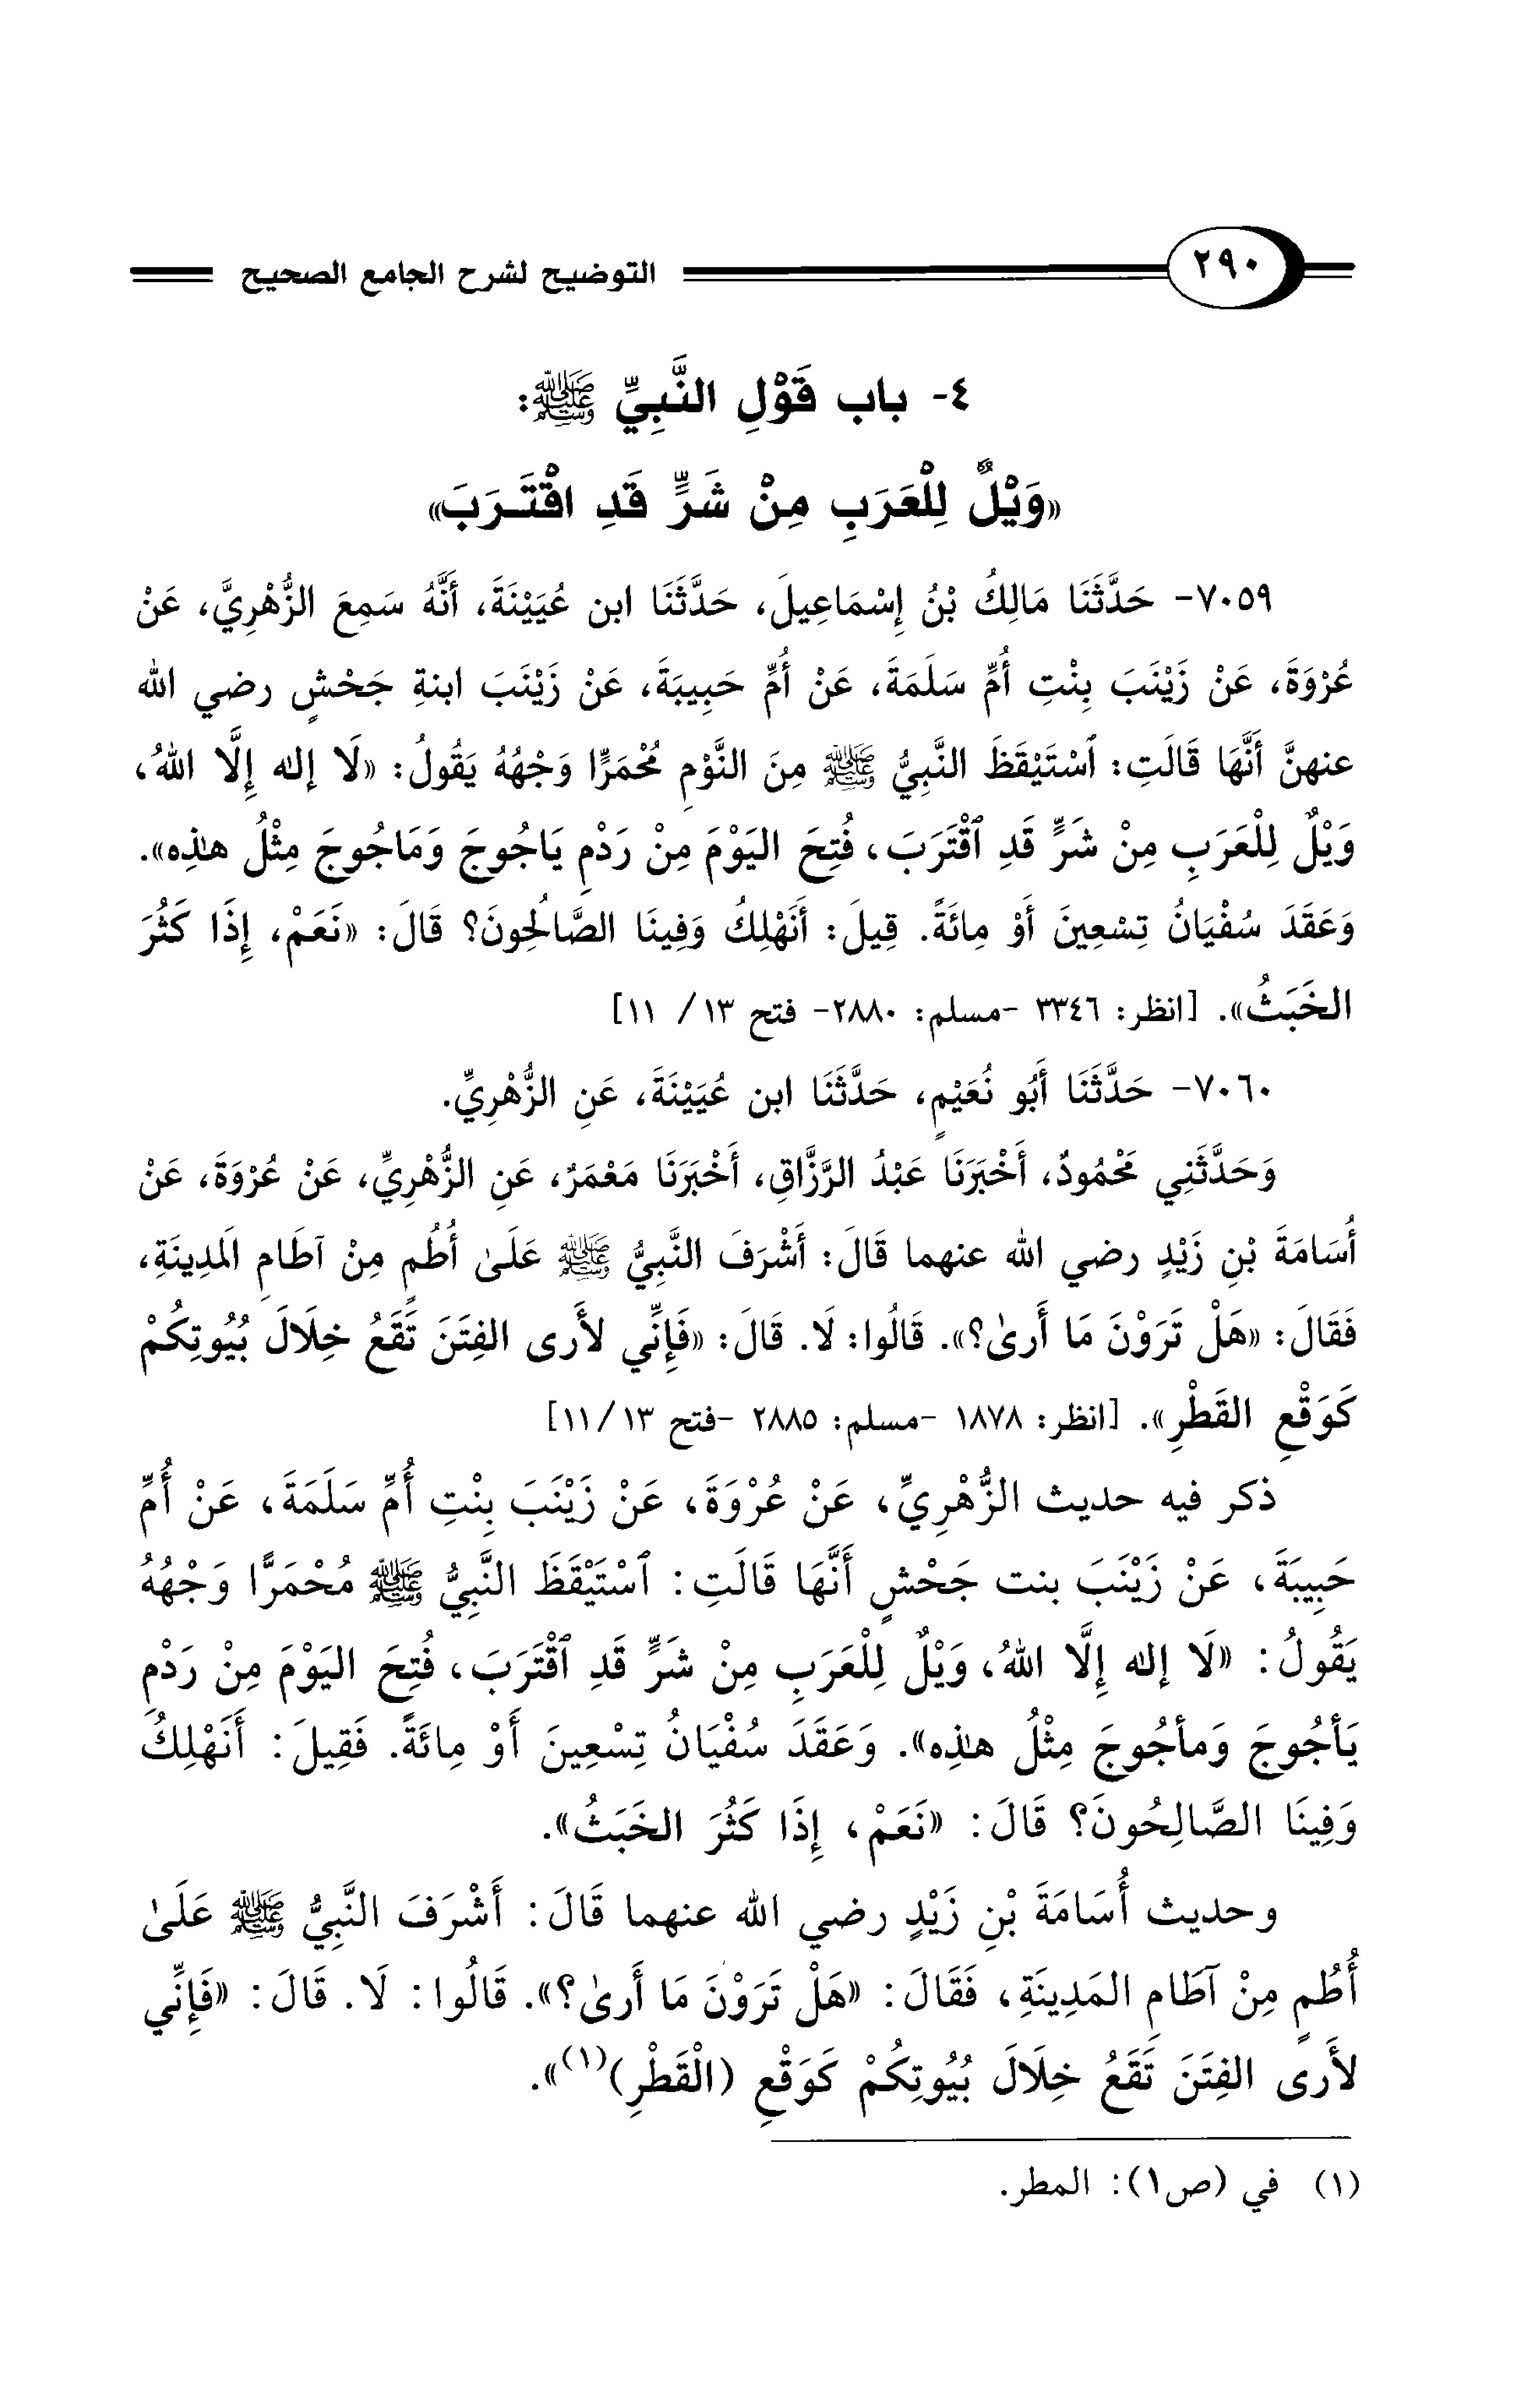 ٢٩٠ التوضيح لشرح الجامع الصحيح
٤- باب قَوْلِ النَّبِيِّ ﷺ:
«وَيْلٌ لِلْعَرَبِ مِنْ شَرٍّ قَدِ اقْتَـرَبَ»
٧٠٥٩- حَدَّثَنَا مَالِكُ بْنُ إِسْمَاعِيلَ، حَدَّثَنَا ابن عُيَيْنَةَ، أَنَّهُ سَمِعَ الزُّهْرِيَّ، عَنْ
عُرْوَةَ، عَنْ زَيْنَبَ بِنْتِ أُمِّ سَلَمَةَ، عَنْ أُمِّ حَبِيبَةَ، عَنْ زَيْنَبَ ابنةِ جَحْشٍ رضي الله
عنهنَّ أَنَّهَا قَالَتِ: ٱسْتَيْقَظَ النَّبِيُّ ﷺ مِنَ النَّوْمِ مُحْمَرًّا وَجْهُهُ يَقُولُ: «لَا إله إِلَّا اللهُ،
وَيْلٌ لِلْعَرَبِ مِنْ شَرٍّ قَدِ ٱقْتَرَبَ، فُتِحَ اليَوْمَ مِنْ رَدْمِ يَاجُوجَ وَمَاجُوجَ مِثْلُ هذِه».
وَعَقَدَ سُفْيَانُ تِسْعِينَ أَوْ مِائَةً. قِيلَ: أَنَهْلِكُ وَفِينَا الصَّالِحُونَ؟ قَالَ: «نَعَمْ، إِذَا كَثُرَ
الخَبَثُ». [انظر: ٣٣٤٦ -مسلم: ٢٨٨٠- فتح ١٣/ ١١]
٧٠٦٠- حَدَّثَنَا أَبُو نُعَيْمٍ، حَدَّثَنَا ابن عُيَيْنَةَ، عَنِ الزُّهْرِيِّ.
وَحَدَّثَنِي مَحْمُودٌ، أَخْبَرَنَا عَبْدُ الرَّزَّاقِ، أَخْبَرَنَا مَعْمَرٌ، عَنِ الزُّهْرِيِّ، عَنْ عُرْوَةَ، عَنْ
أُسَامَةَ بْنِ زَيْدٍ رضي الله عنهما قَالَ: أَشْرَفَ النَّبِيُّ ﷺ عَلَىٰ أُطُمٍ مِنْ آطَامِ المَدِينَةِ،
فَقَالَ: «هَلْ تَرَوْنَ مَا أَرىٰ؟». قَالُوا: لَا. قَالَ: «فَإِنِّي لأَرى الفِتَنَ تَقَعُ خِلَالَ بُيُوتِكُمْ
كَوَقْعِ القَطْرِ». [انظر: ١٨٧٨ -مسلم: ٢٨٨٥ -فتح ١١/١٣]
ذكر فيه حديث الزُّهْرِيِّ، عَنْ عُرْوَةَ، عَنْ زَيْنَبَ بِنْتِ أُمِّ سَلَمَةَ، عَنْ أُمِّ
حَبِيبَةَ، عَنْ زَيْنَبَ بنت جَحْشٍ أَنَّهَا قَالَتِ: ٱسْتَيْقَظَ النَّبِيُّ ﷺ مُحْمَرًّا وَجْهُهُ
يَقُولُ: «لَا إله إِلَّا اللهُ، وَيْلٌ لِلْعَرَبِ مِنْ شَرٍّ قَدِ ٱقْتَرَبَ، فُتِحَ اليَوْمَ مِنْ رَدْمِ
يَأجُوجَ وَمأجُوجَ مِثْلُ هذِه». وَعَقَدَ سُفْيَانُ تِسْعِينَ أَوْ مِائَةً. فَقِيلَ: أَنَهْلِكُ
وَفِينَا الصَّالِحُونَ؟ قَالَ: «نَعَمْ، إِذَا كَثُرَ الخَبَثُ».
وحديث أُسَامَةَ بْنِ زَيْدٍ رضي الله عنهما قَالَ: أَشْرَفَ النَّبِيُّ ﷺ عَلَىٰ
أُطُمٍ مِنْ آطَامِ المَدِينَةِ، فَقَالَ: «هَلْ تَرَوْنَ مَا أَرىٰ؟». قَالُوا: لَا. قَالَ: «فَإِنِّي
لأَرى الفِتَنَ تَقَعُ خِلَالَ بُيُوتِكُمْ كَوَقْعِ (الْقَطْرِ)(١)».
(١) في (ص١): المطر.